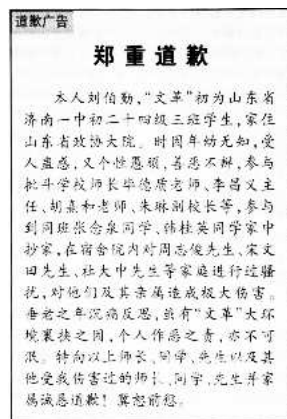 道歉广告
郑重道歉
本人刘伯勤,“文革”初为山东省
济南一中初二十四级三班学生,家住
山东省政协大院。时因年幼无知,受
人蛊惑,又个性愚顽,善恶不辨,参与
批斗学校师长毕德质老师、李昌义主
任、胡熹和老师、朱琳副校长等,参与
到同班张念泉同学、韩桂英同学家中
抄家,在宿舍院内对周志俊先生、宋文
田先生、杜大中先生等家庭进行过骚
扰,对他们及其亲属造成极大伤害。
垂老之年沉痛反思,虽有“文革”大环
境裹挟之因,个人作恶之责,亦不可
泯。转向以上师长、同学、先生以及其
他受我伤害过的师长、同学、先生并家
属诚恳道歉!冀恕前愆。